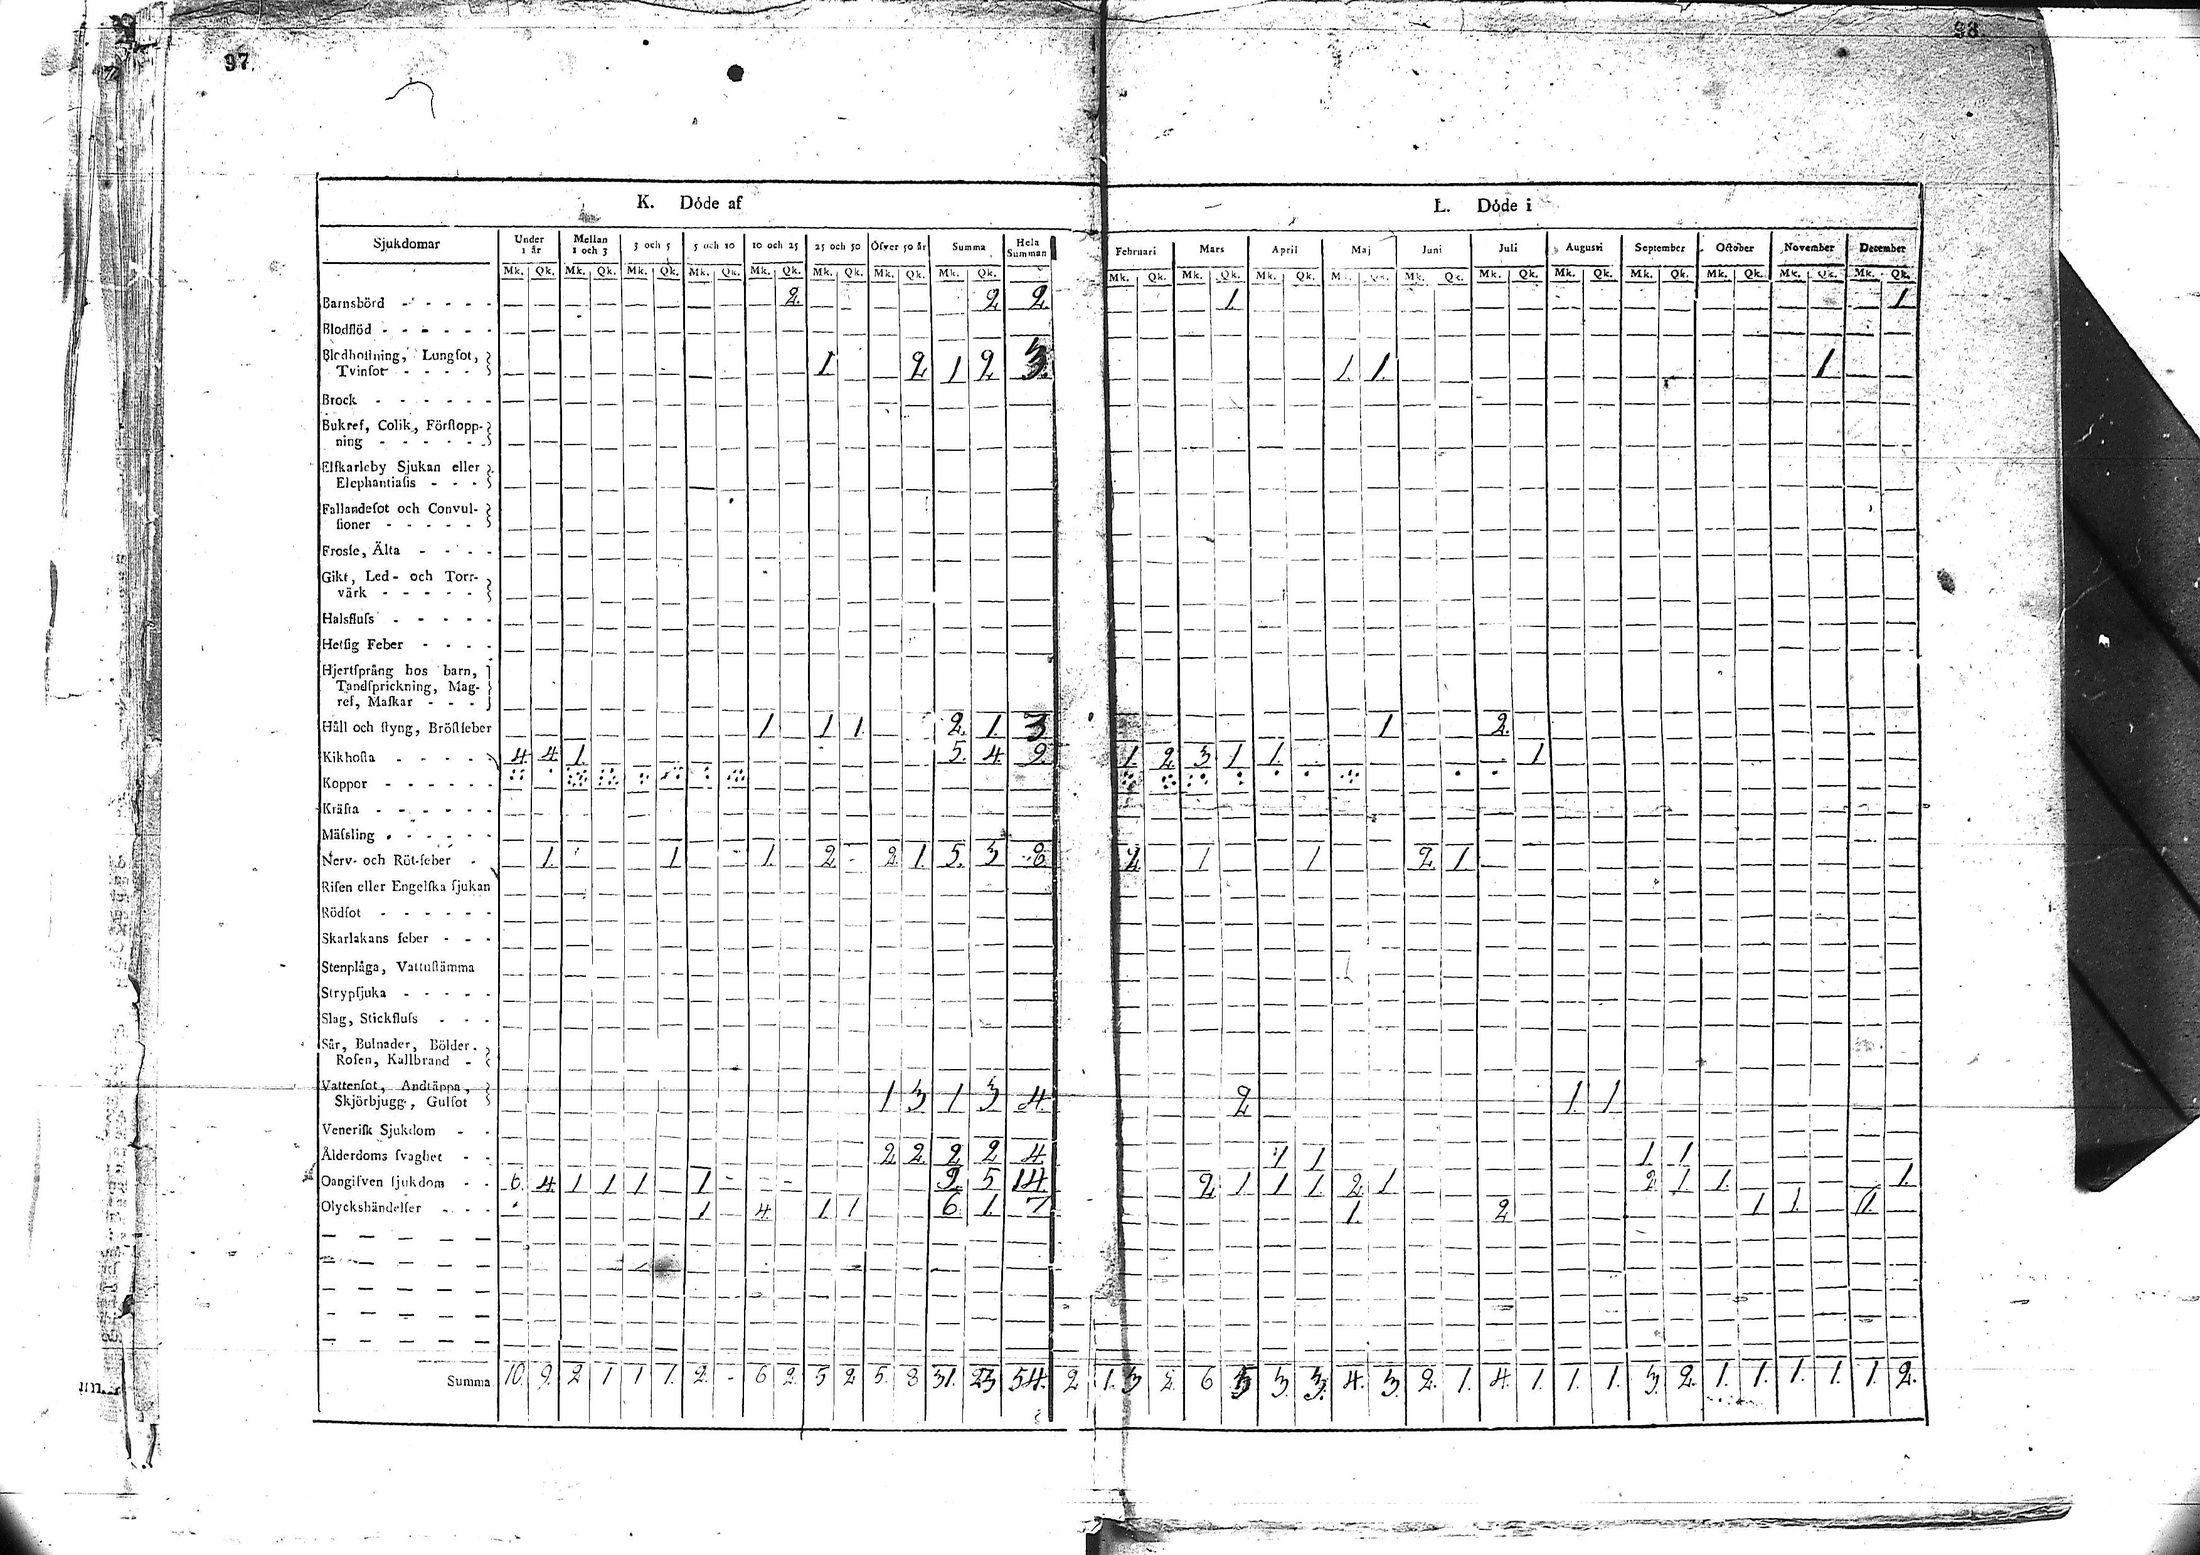 97.
98
K. Döde af
L. Döde i
Sjukdomar
Under 1 år
Mellan 1 och 3
3 och 5
5 och 10
10 och 25
25 och 50
Öfver 50 år
Summa
Hela Summan
Februari
Mars
April
Maj
Juni
Juli
Augusti
September
October
November
December
Mk. Qk. Mk. Qk. Mk. Qk. Mk. Qk. Mk. Qk. Mk. Qk. Mk. Qk. Mk. Qk.
Mk. Qk. Mk. Qk. Mk. Qk. Mk. Qk. Mk. Qk. Mk. Qk. Mk. Qk. Mk. Qk. Mk. Qk. Mk. Qk. Mk. Qk.
Barnsbörd - - - - - 2. 2 2. 1. 1
Blodflöd - - - - - -
Blodhostning, Lungsot,
Tvinsot - - - - 1. 2 1 2 3. 1. 1. 1
Brock - - - - - -
Bukref, Colik, Förstopp-
ning - - - - -
Elfkarleby Sjukan eller
Elephantiasis - - -
Fallandesot och Convul-
sioner - - - - -
Frossa, Älta - - - -
Gikt, Led- och Torr-
värk - - - - -
Halsfluss - - - - -
Hetsig Feber - - - -
Hjertsprång hos barn,
Tandsprickning, Mag-
ref, Maskar - - -
Håll och styng, Bröstfeber 1 1 1. 2. 1. 3 1 2.
Kikhosta - - - - - 4. 4 1. 5. 4. 9 1. 2. 3 1 1. 1
Koppor - - - - - -
Kräfta - - - - - -
Mässling - - - - -
Nerv- och Röt-feber - 1. 1 1. 2 2. 1. 5. 3 8 2 1 1 2. 1.
Risen eller Engelska sjukan
Rödsot - - - - - -
Skarlakans feber - - -
Stenplåga, Vattustämma
Strypsjuka - - - - -
Slag, Stickfluss - - -
Sår, Bulnader, Bölder.
Rosen, Kallbrand -
Vattensot, Andtäppa,
Skjörbjugg, Gulsot 1 3 1 3 4. 2 1. 1.
Venerisk Sjukdom - -
Ålderdoms svaghet - - 2 2. 2 2 4. 1 1 1 1
Oangifven sjukdom - - 6. 4. 1 1 1 1 9. 5 14 2. 1 1 1. 2 1 2. 1 1. 1.
Olyckshändelser - - - 1 4. 1. 1 6. 1. 7 1. 2 1 1. 1.
Summa 10. 9. 2 1 1 1. 2. - 6 2. 5 2 5. 8 31. 23 54. 2 1. 3 2. 6 5 3 3. 4. 3. 2. 1. 4. 1. 1. 1. 3. 2. 1. 1. 1. 1. 1. 2.